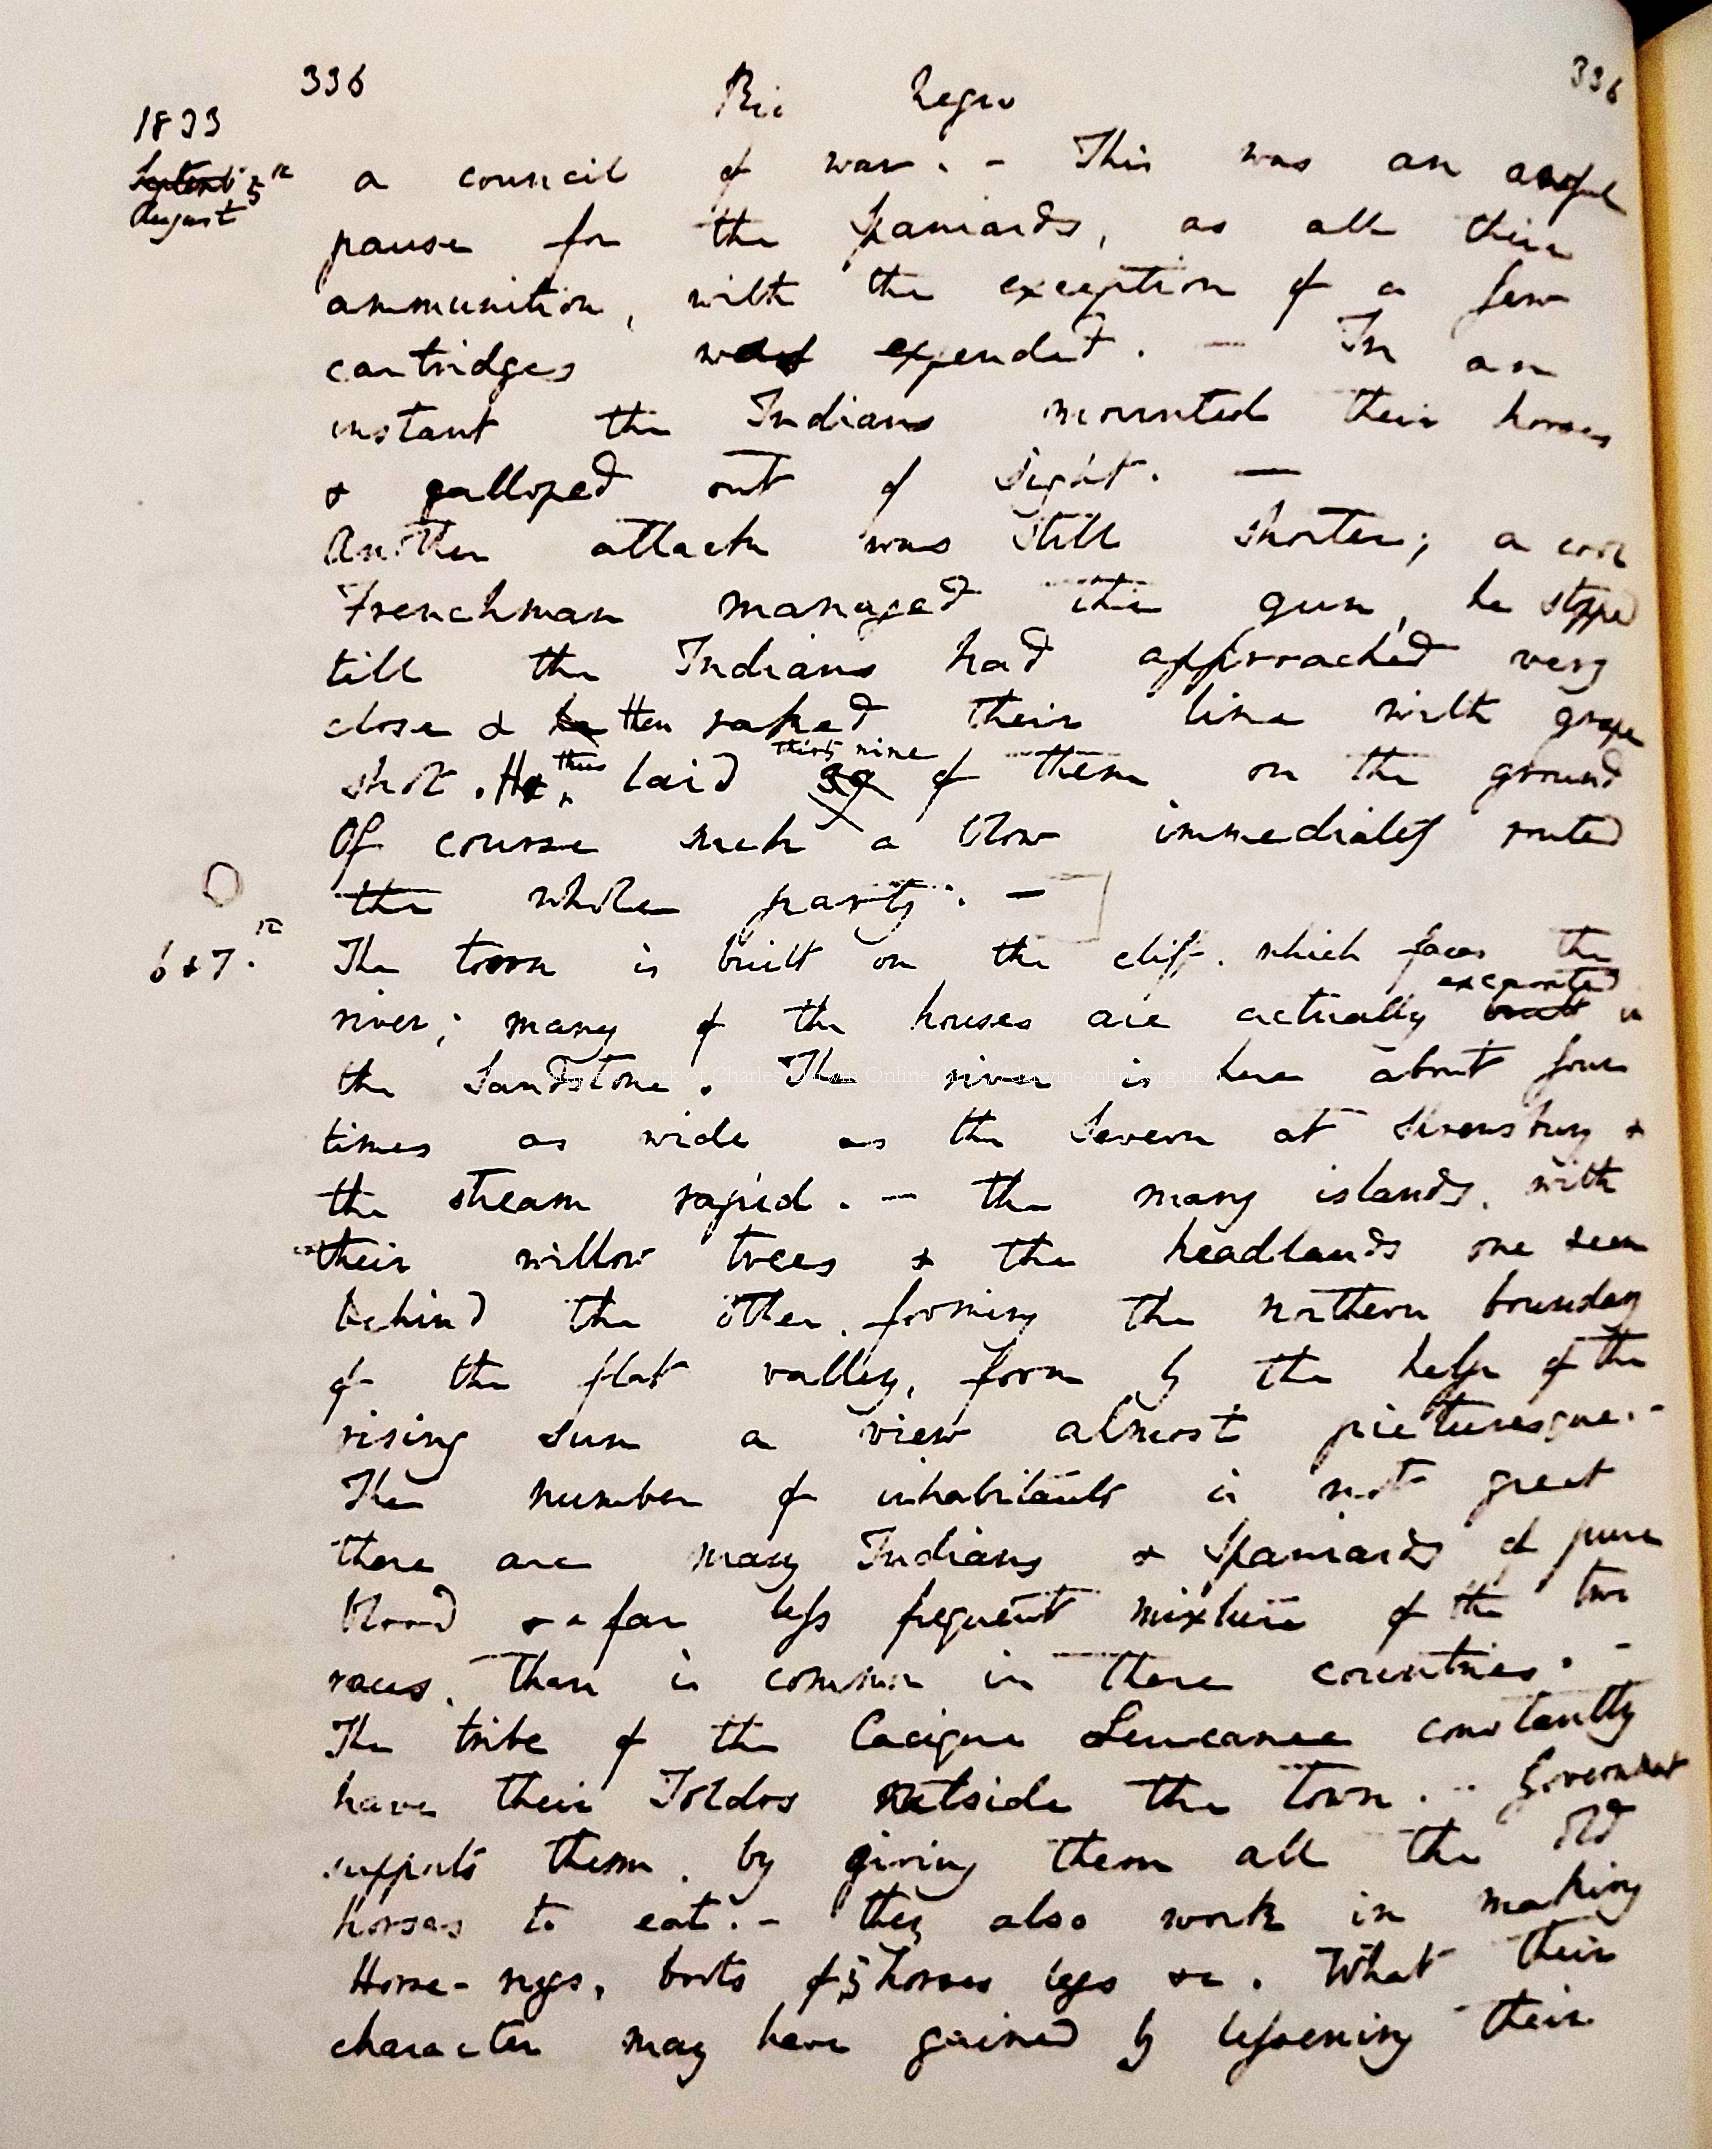 336 Rio Negro 336
1833
Septemb 5th
August
a council of war. - This was an awful
pause for the Spaniards, as all their
ammunition, with the exception of a few
cartridges was expended. - In an
instant the Indians mounted their horses
& galloped out of sight. —
Another attack was still shorter; a cool
Frenchman managed the gun, he stopped
till the Indians had approached very
close & he then raked their line with grape
shot. He thus laid 39 thirty nine of them on the ground
Of course such a blow immediately routed
the whole party. -
6 & 7.th The town is built on the cliff. which faces the
river; many of the houses are actually built excavated in
the Sandstone. The river is here about four
times as wide as the Severn at Shrewsbury &
the stream rapid. - the many islands. with
their willow trees & the headlands one seen
behind the other. forming the northern boundary
of the flat valley, form by the help of the
rising sun a view almost picturesque. -
The number of inhabitants is not great
there are many Indians & Spaniards of pure
blood & a far less frequent mixture of the two
races. than is common in these countries. -
The tribe of the Cacique Leucanee constantly
have their Toldos outside the town. - Government
supports them. by giving them all the old
horses to eat. - they also work in making
Horse-rugs, boots of horses legs &c. What their
character may have gained by lessening their
The Complete Work of Charles Darwin Online